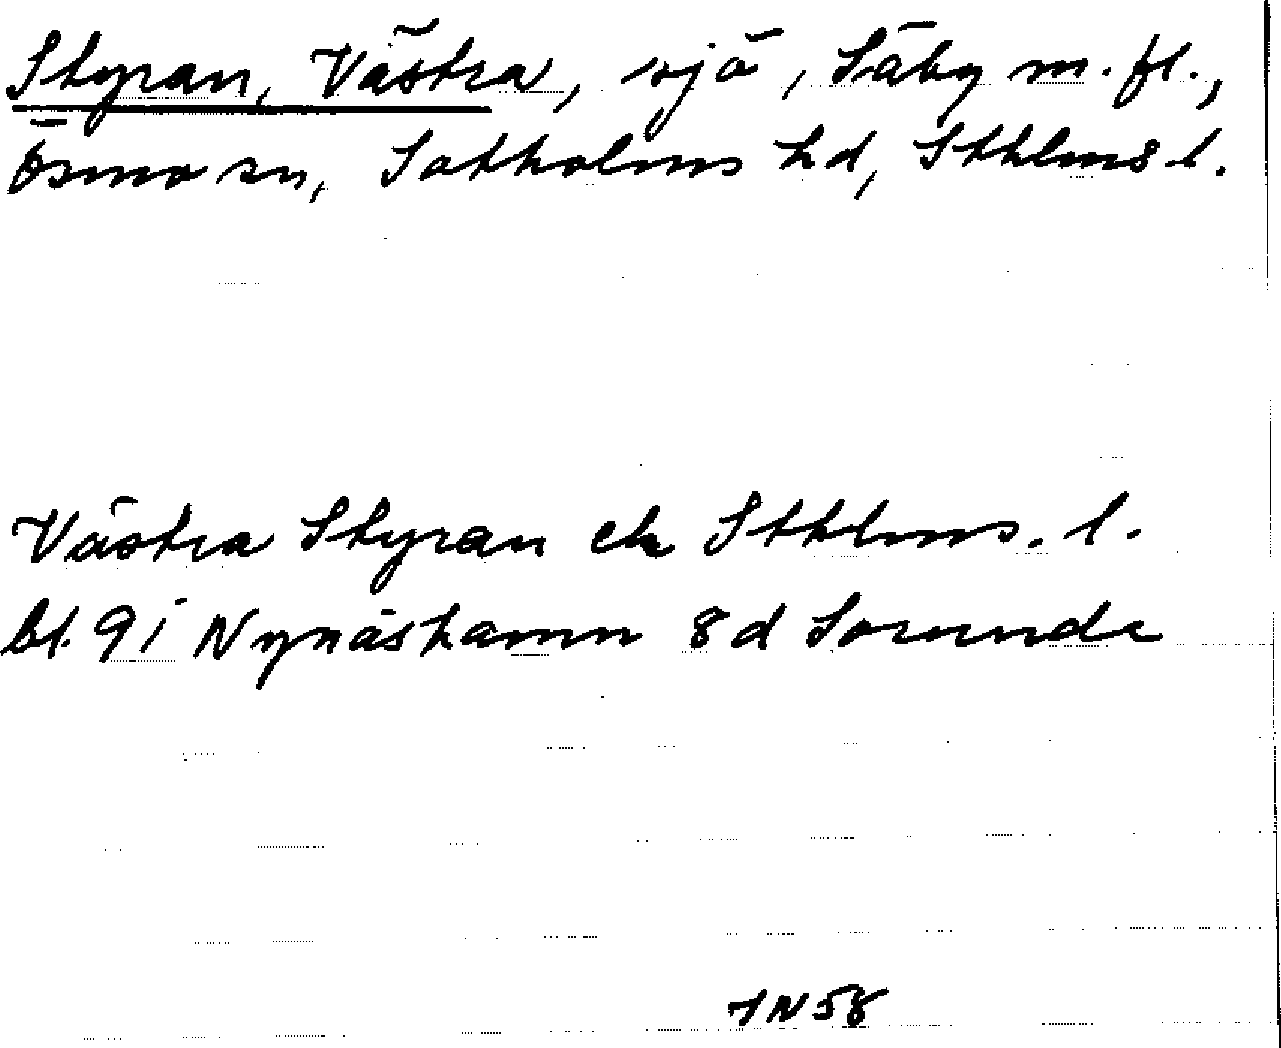 Styran, Västra, sjö, Säby m. fl.,
Ösmo sn, Sotholms hd, Sthlms l.
Västra Styran ek Sthlms. l.
bl. 91 Nynäshamn 8d Sorunda
IN 58